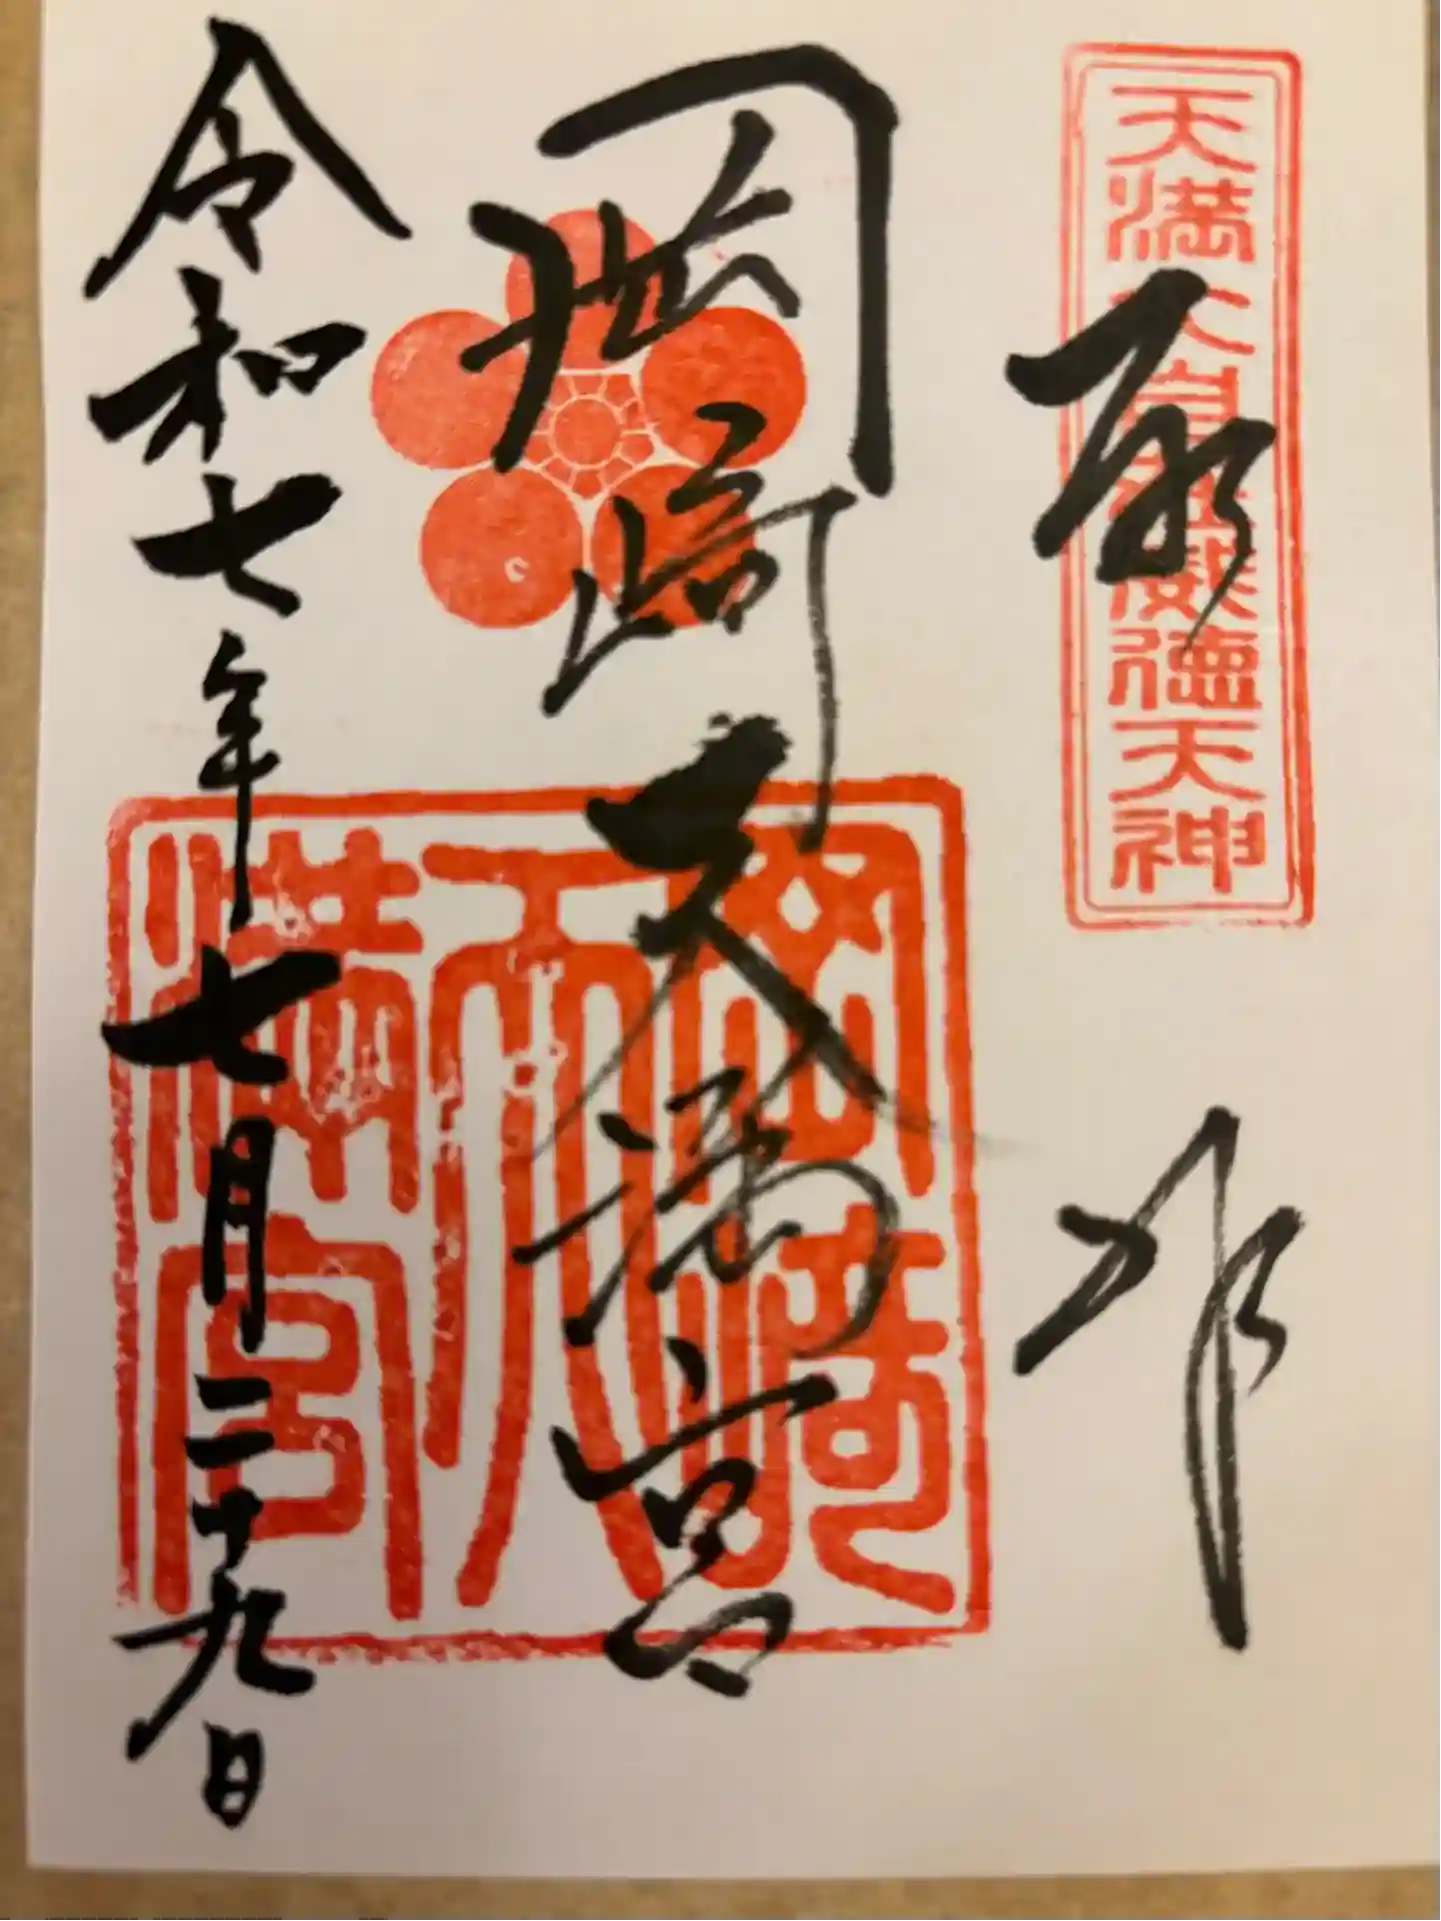 奉拝
天満大自在威徳天神
岡崎天満宮
岡崎天満宮
令和七年七月二十九日